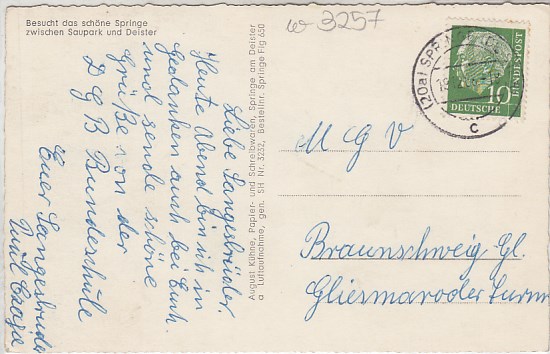 Besucht das schöne Springe
zwischen Saupark und Deister
w-3257
Liebe Sangesbrüder.
Heute Abend bin ich in
Gedanken auch bei Euch.
und sende schöne
Grüße von der
DGB Bundesschule
Euer Sangesbruder
August Kühne, Papier- und Schreibwaren, Springe am Deister
a Luftaufnahme, gen. SH Nr. 3252, Bestellnr. Springe Flg 650
(20a) SPR
c
DEUTSCHE BUNDESPOST
10
MGV
Braunschweig Gl.
Gliesmaroder Turm